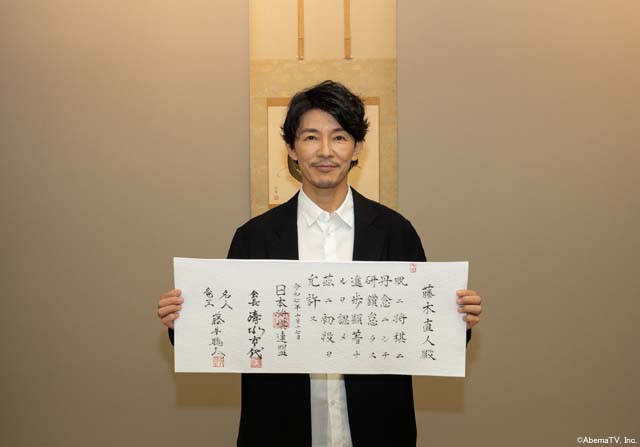 藤木直人殿
夙ニ将棋ニ
丹念ニシテ
研鑽怠ラス
進歩顕著ナ
ルヲ認メ
茲ニ初段ヲ
允許ス
令和七年十月十七日
日本将棋連盟
会長 清水市代
名人
竜王 藤井聡太
©AbemaTV, Inc.